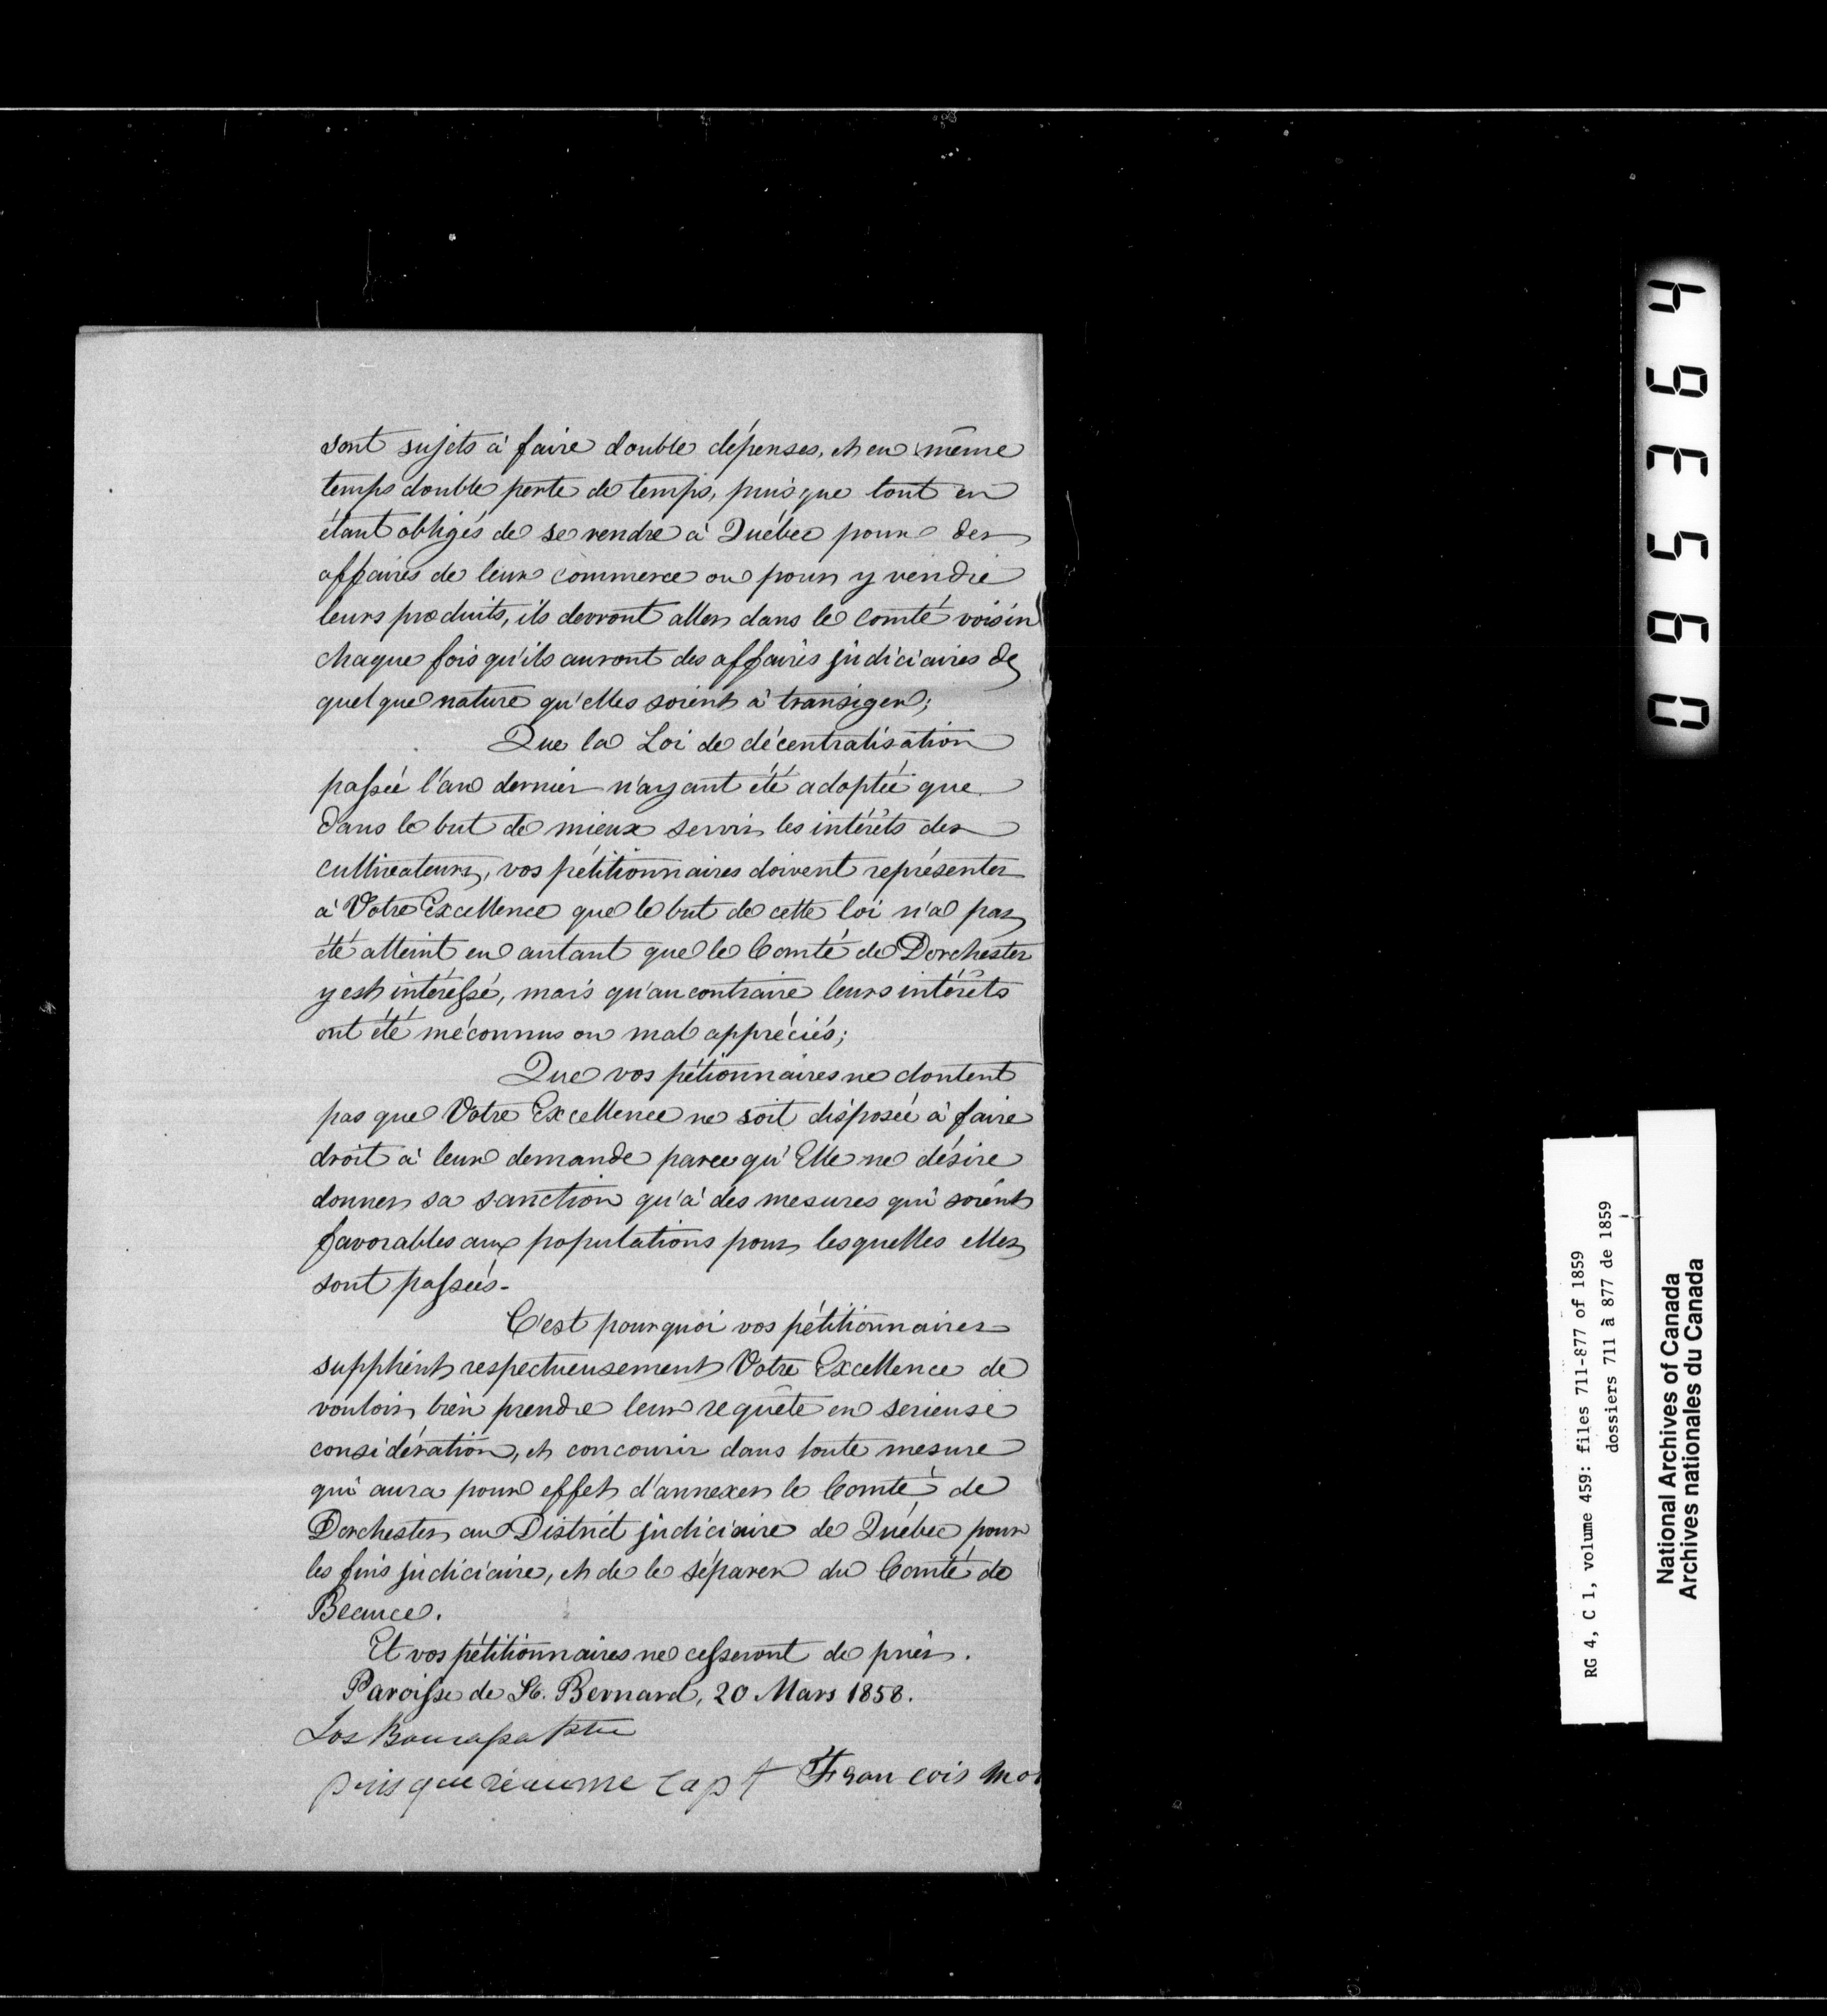 sont sujets à faire double dépenses, et en même
temps double perte de temps, puisque tout en
étant obligés de se rendre à Québec pour des
affaires de leur commerce ou pour y vendre
leurs produits, ils devront aller dans le comté voisin
chaque fois qu'ils auront des affaires judiciaires de
quelque nature qu'elles soient à transiger;
Que la Loi de décentralisation
passée l'an dernier n'ayant été adoptée que
dans le but de mieux servir les intérêts des
cultivateurs, vos pétitionnaires doivent représenter
à Votre Excellence que le but de cette loi n'a pas
été atteint en autant que le Comté de Dorchester
y est intéressé, mais qu'au contraire leurs intérêts
ont été méconnus ou mal appréciés;
Que vos pétionnaires ne doutent
pas que Votre Excellence ne soit disposée à faire
droit à leur demande parce qu'Elle ne désire
donner sa sanction qu'à des mesures qui soient
favorables aux populations pour lesquelles elles
sont passées.
C'est pourquoi vos pétitionnaires
supplient respectueusement Votre Excellence de
vouloir bien prendre leur requête en serieuse
considération, et concourir dans toute mesure
qui aura pour effet d'annexer le Comté de
Dorchester au District judiciaire de Québec pour
les fins judiciaire, et de le séparer du Comté de
Beauce.
Et vos pétitionnaires ne cesseront de prier.
Paroisse de St. Bernard, 20 Mars 1858.
Ptre
capt François
095364
RG 4, C 1, volume 459: files 711-877 of 1859
dossiers 711 à 877 de 1859
National Archives of Canada
Archives nationales du Canada